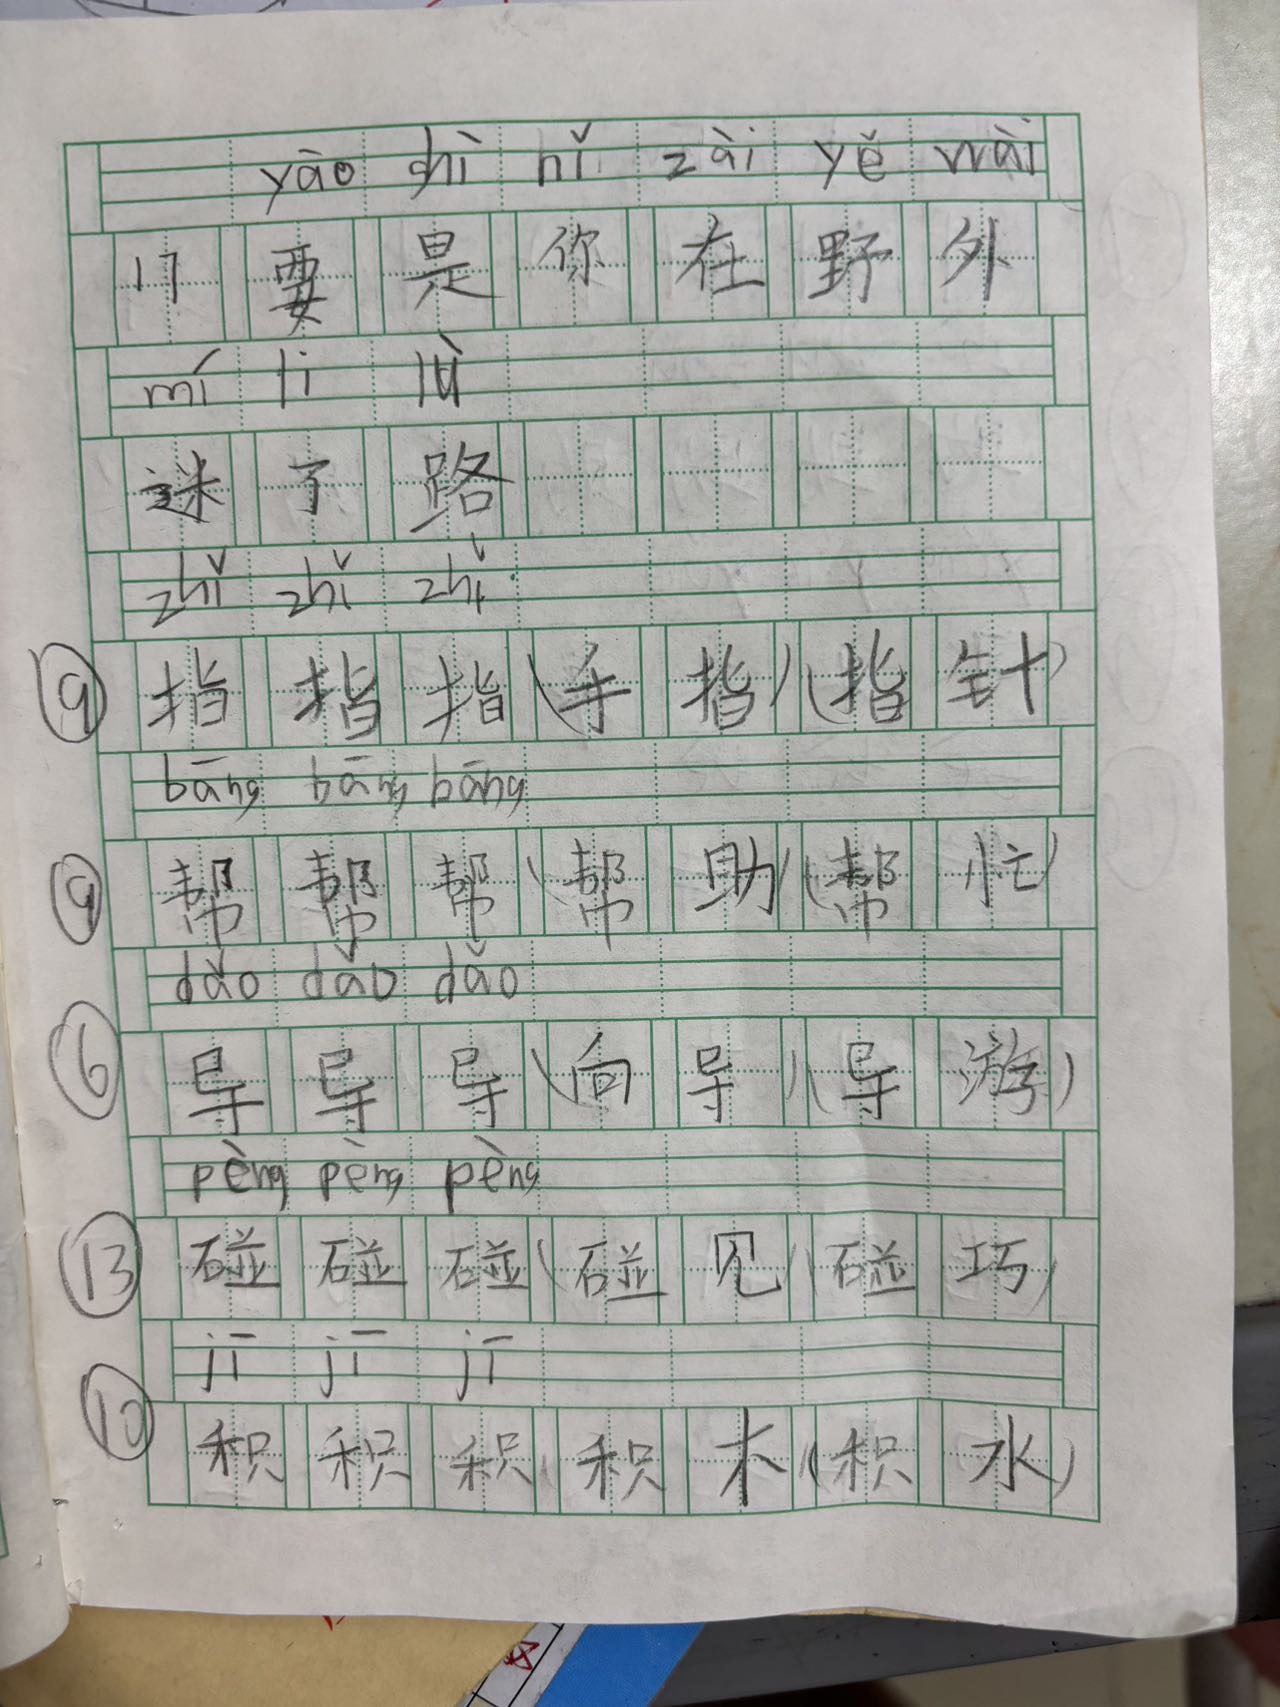 yāo shì nǐ zài yě wài
17 要是你在野外
mí li lù
迷了路
zhǐ zhǐ zhǐ
⑨ 指指指(手指)(指针)
bāng bāng bāng
⑨ 帮帮帮(帮助)(帮忙)
dǎo dǎo dǎo
⑥ 导导导(向导)(导游)
pèng pèng pèng
⑬ 碰碰碰(碰见)(碰巧)
jī jī jī
⑩ 积积积(积木)(积水)